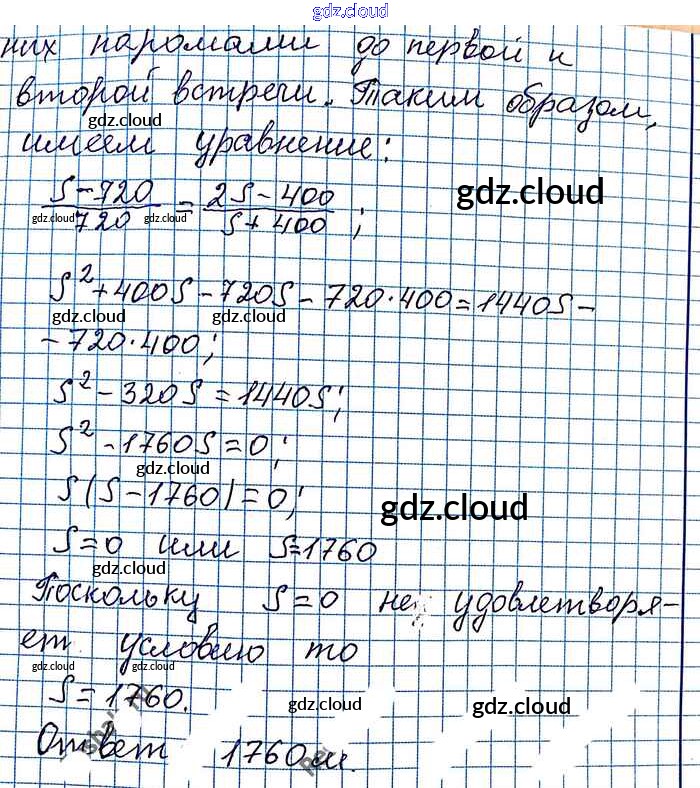 gdz.cloud
них паромами до первой и
второй встречи. Таким образом,
gdz.cloud
gdz.cloud
имеем уравнение:
(S-720)/720 = (2S-400)/(S+400);
gdz.cloud
gdz.cloud
gdz.cloud
S²+400S-720S-720·400=1440S-
gdz.cloud
gdz.cloud
gdz.cloud
-720·400;
S²-320S=1440S;
gdz.cloud
S²-1760S=0;
gdz.cloud
S(S-1760)=0;
gdz.cloud
gdz.cloud
S=0 или S=1760
gdz.cloud
Поскольку S=0 не удовлетворя-
ет условию то
gdz.cloud
gdz.cloud
S=1760.
gdz.cloud
gdz.cloud
Ответ 1760м.